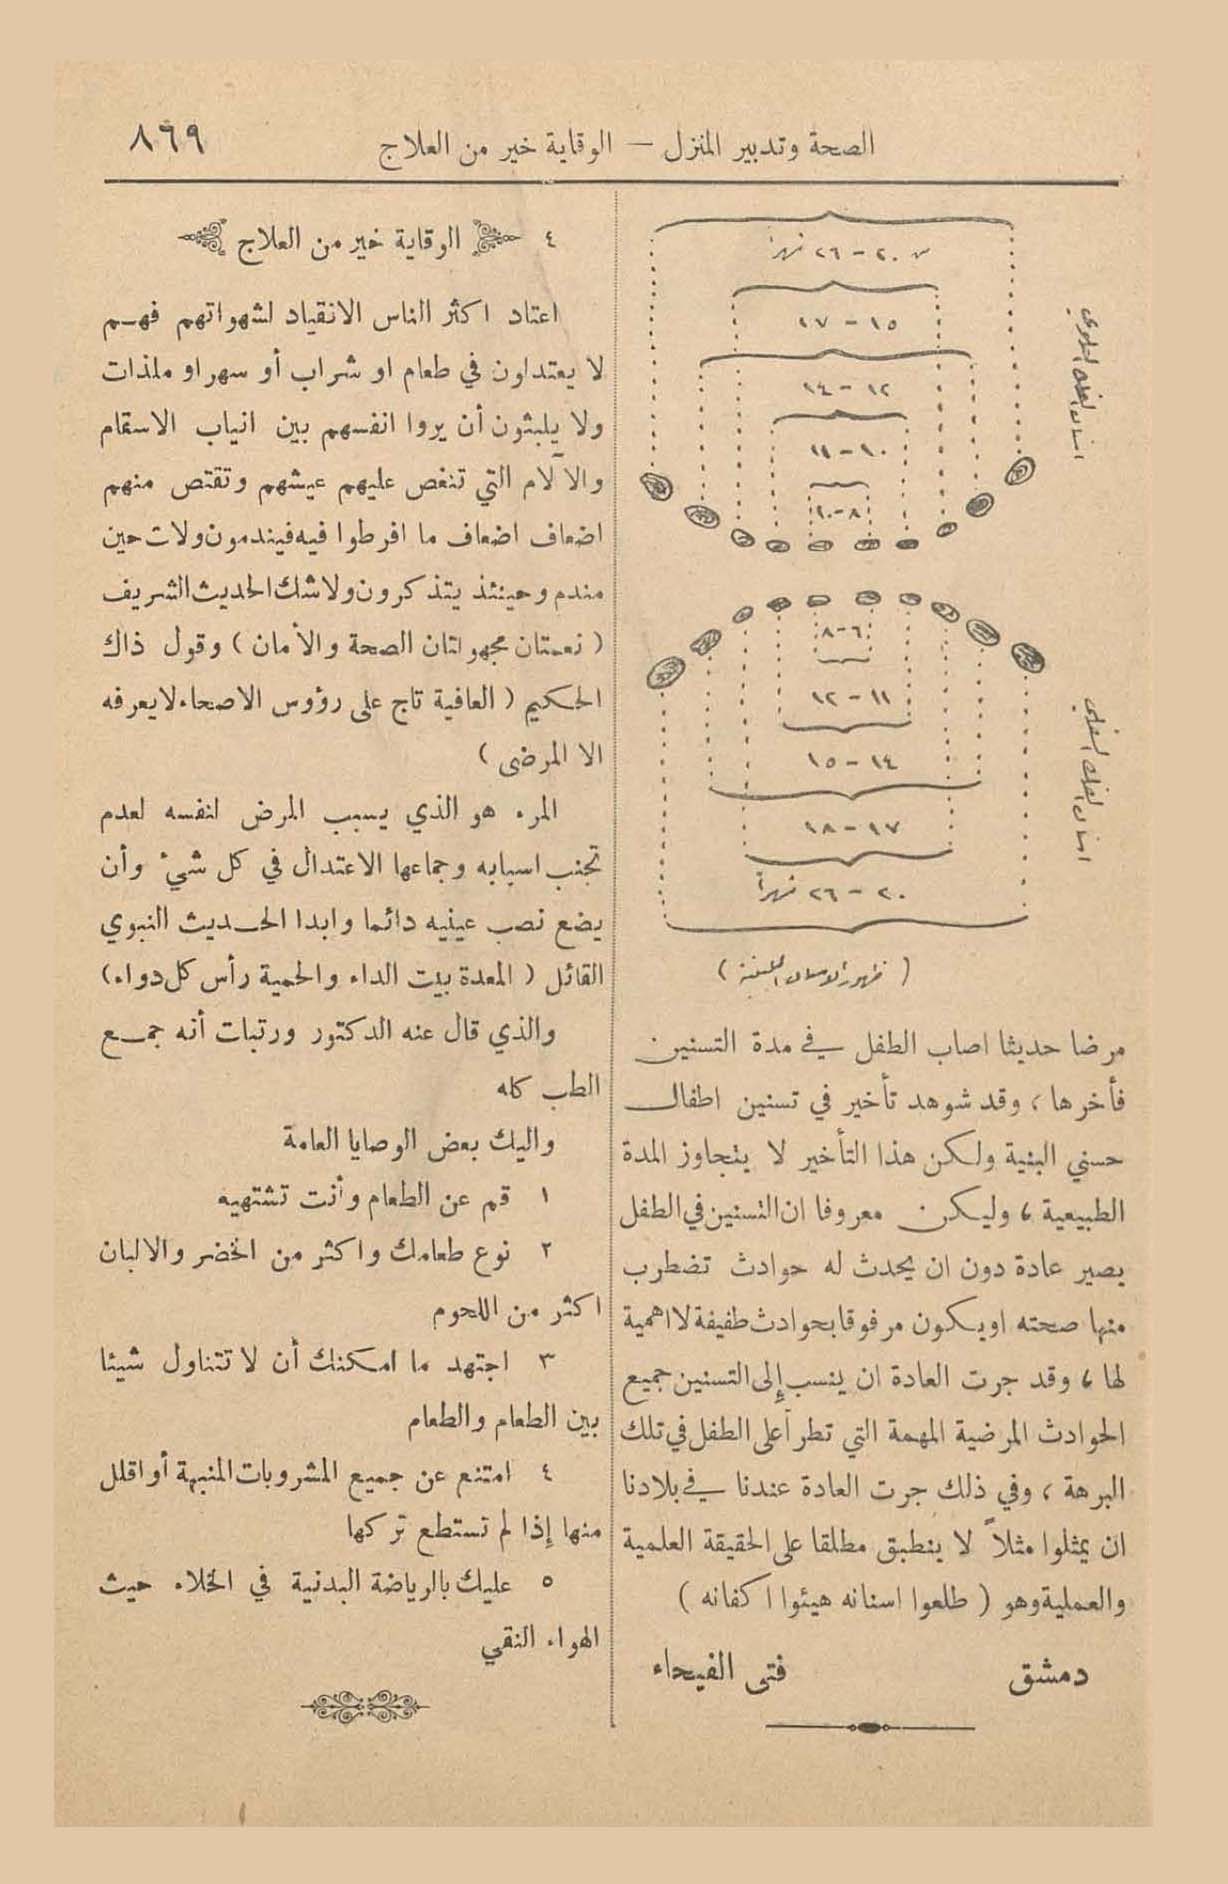 الصحة وتدبير المنزل — الوقاية خير من العلاج ٨٦٩
من ٢٠ – ٢٦ شهراً
١٥ – ١٧
١٢ – ١٤
١٠ – ١١
٨ – ١٠
اسنان الفك العلوي
٦ – ٨
١١ – ١٢
١٤ – ١٥
١٧ – ١٨
٢٠ – ٢٦ شهراً
اسنان الفك السفلي
( ظهور الاسنان اللبنية )
مرضا حديثا اصاب الطفل في مدة التسنين
فأخرها ، وقد شوهد تأخير في تسنين اطفال
حسني البنية ولكن هذا التأخير لا يتجاوز المدة
الطبيعية ، وليكن معروفا ان التسنين في الطفل
يصير عادة دون ان يحدث له حوادث تضطرب
منها صحته او يكون مرفوقا بحوادث طفيفة لا اهمية
لها ، وقد جرت العادة ان ينسب إلى التسنين جميع
الحوادث المرضية المهمة التي تطرأ على الطفل في تلك
البرهة ، وفي ذلك جرت العادة عندنا في بلادنا
ان يمثلوا مثلاً لا ينطبق مطلقا على الحقيقة العلمية
والعملية وهو ( طلعوا اسنانه هيئوا اكفانه )
دمشق فتى الفيحاء
٤ الوقاية خير من العلاج
اعتاد اكثر الناس الانقياد لشهواتهم فهم
لا يعتدلون في طعام او شراب أو سهر او ملذات
ولا يلبثون أن يروا انفسهم بين انياب الاسقام
والآلام التي تنغص عليهم عيشهم وتقتص منهم
اضعاف اضعاف ما افرطوا فيه فيندمون ولات حين
مندم وحينئذ يتذكرون ولا شك الحديث الشريف
( نعمتان مجهولتان الصحة والأمان ) وقول ذاك
الحكيم ( العافية تاج على رؤوس الاصحاء لا يعرفه
الا المرضى )
المرء هو الذي يسبب المرض لنفسه لعدم
تجنب اسبابه وجماعها الاعتدال في كل شيء وأن
يضع نصب عينيه دائما وابدا الحديث النبوي
القائل ( المعدة بيت الداء والحمية رأس كل دواء )
والذي قال عنه الدكتور ورتبات أنه جمع
الطب كله
واليك بعض الوصايا العامة
١ قم عن الطعام وأنت تشتهيه
٢ نوع طعامك واكثر من الخضر والالبان
اكثر من اللحوم
٣ اجتهد ما امكنك أن لا تتناول شيئا
بين الطعام والطعام
٤ امتنع عن جميع المشروبات المنبهة أو اقلل
منها إذا لم تستطع تركها
٥ عليك بالرياضة البدنية في الخلاء حيث
الهواء النقي